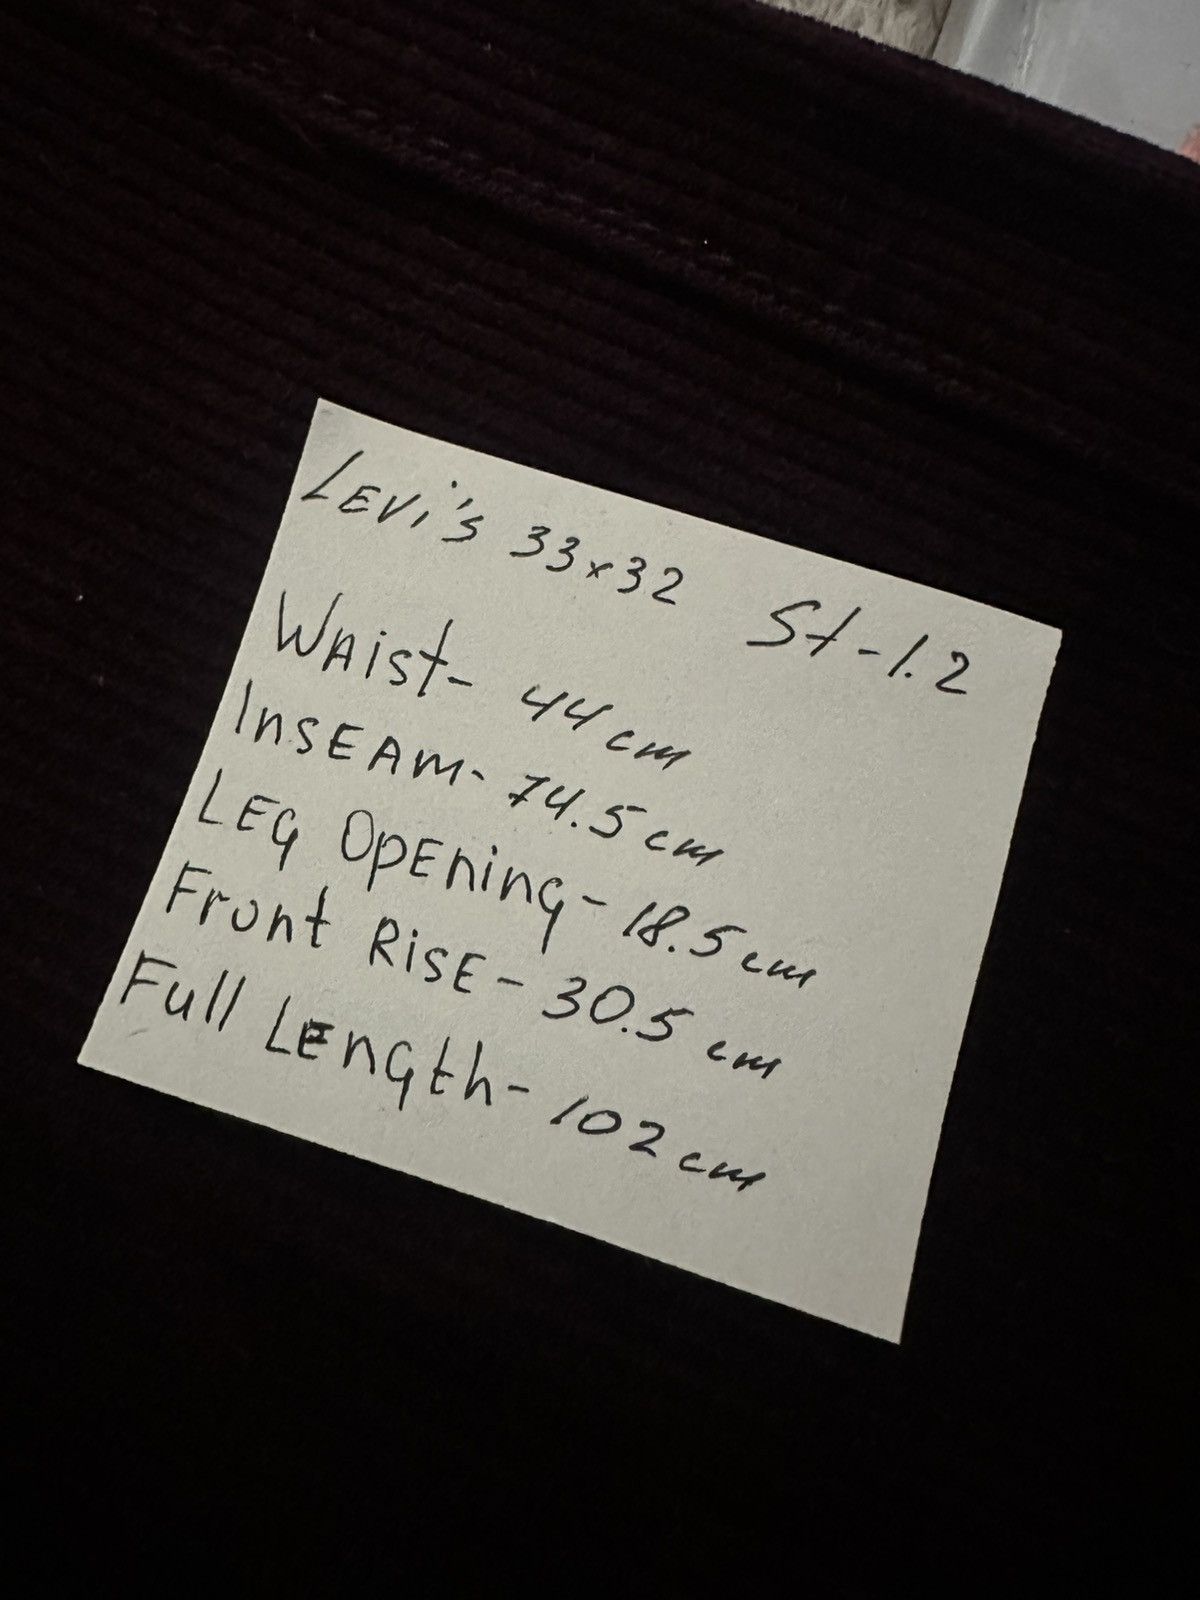 LEVi's 33x32 St-1.2
WAist- 44 cm
InSEAM- 74.5 cm
LEG OpEning- 18.5 cm
Front RiSE- 30.5 cm
Full LEngth- 102 cm